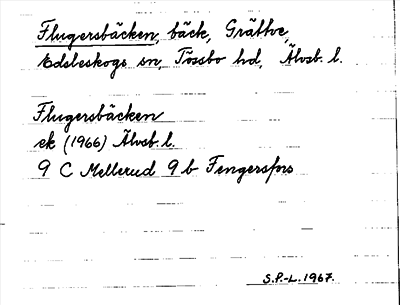 Flugersbäcken, bäck, Gräthe,
Edsleskogs sn, Tössbo hd, Älvsb. l.
Flugersbäcken
ek (1966) Älvsb. l.
9 C Mellerud 9 b Fengersfors
S.P.-L. 1967.